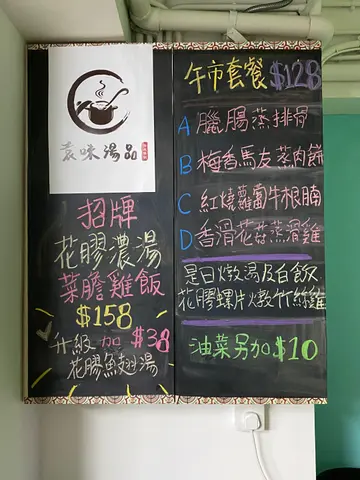 袁味湯品
招牌
花膠濃湯
菜膽雞飯
$158
升級加$38
花膠魚翅湯
午市套餐 $128
A 臘腸蒸排骨
B 梅香馬友蒸肉餅
C 紅燒蘿蔔牛根腩
D 香滑花菇蒸滑雞
是日燉湯及白飯
花膠螺片燉竹絲雞
油菜另加$10